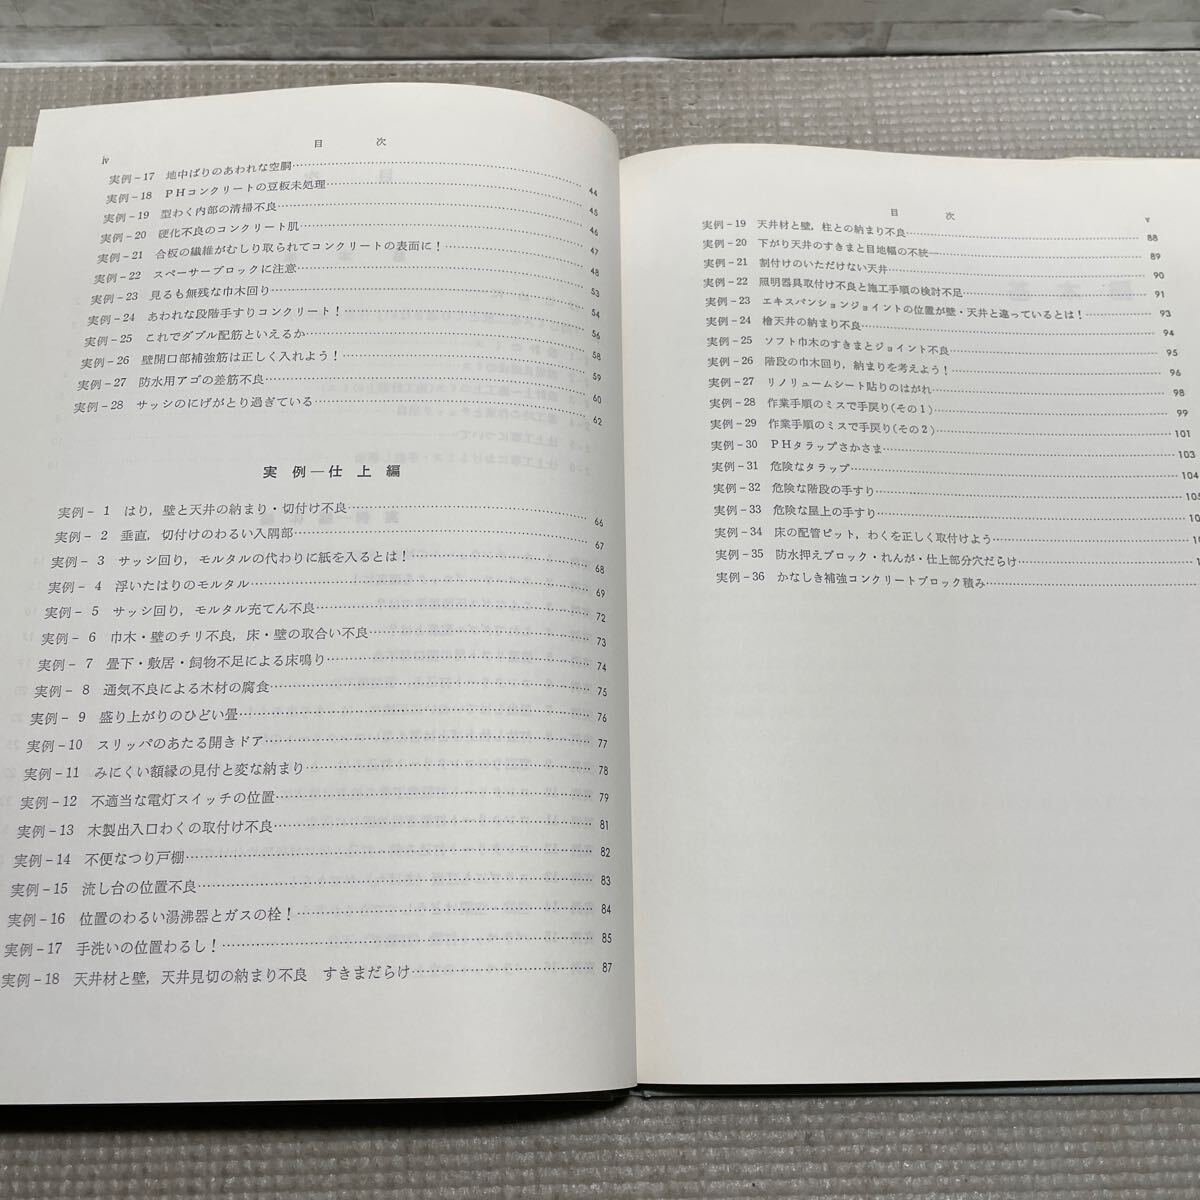 iv
目次
実例−17 地中ばりのあわれな空胴 44
実例−18 PHコンクリートの豆板未処理 45
実例−19 型わく内部の清掃不良 46
実例−20 硬化不良のコンクリート肌 47
実例−21 合板の繊維がむしり取られてコンクリートの表面に! 48
実例−22 スペーサーブロックに注意 53
実例−23 見るも無残な巾木回り 54
実例−24 あわれな段階手すりコンクリート! 56
実例−25 これでダブル配筋といえるか 58
実例−26 壁開口部補強筋は正しく入れよう! 59
実例−27 防水用アゴの差筋不良 60
実例−28 サッシのにげがとり過ぎている 62
実例―仕上編
実例− 1 はり,壁と天井の納まり・切付け不良 66
実例− 2 垂直,切付けのわるい入隅部 67
実例− 3 サッシ回り,モルタルの代わりに紙を入るとは! 68
実例− 4 浮いたはりのモルタル 69
実例− 5 サッシ回り,モルタル充てん不良 72
実例− 6 巾木・壁のチリ不良,床・壁の取合い不良 73
実例− 7 畳下・敷居・飼物不足による床鳴り 74
実例− 8 通気不良による木材の腐食 75
実例− 9 盛り上がりのひどい畳 76
実例−10 スリッパのあたる開きドア 77
実例−11 みにくい額縁の見付と変な納まり 78
実例−12 不適当な電灯スイッチの位置 79
実例−13 木製出入口わくの取付け不良 81
実例−14 不便なつり戸棚 82
実例−15 流し台の位置不良 83
実例−16 位置のわるい湯沸器とガスの栓! 84
実例−17 手洗いの位置わるし! 85
実例−18 天井材と壁,天井見切の納まり不良 すきまだらけ 87
目次
v
実例−19 天井材と壁,柱との納まり不良 88
実例−20 下がり天井のすきまと目地幅の不統一 89
実例−21 割付けのいただけない天井 90
実例−22 照明器具取付け不良と施工手順の検討不足 91
実例−23 エキスパンションジョイントの位置が壁・天井と違っているとは! 93
実例−24 檜天井の納まり不良 94
実例−25 ソフト巾木のすきまとジョイント不良 95
実例−26 階段の巾木回り,納まりを考えよう! 96
実例−27 リノリュームシート貼りのはがれ 98
実例−28 作業手順のミスで手戻り(その1) 99
実例−29 作業手順のミスで手戻り(その2) 101
実例−30 PHタラップさかさま 103
実例−31 危険なタラップ 104
実例−32 危険な階段の手すり 105
実例−33 危険な屋上の手すり
実例−34 床の配管ピット,わくを正しく取付けよう
実例−35 防水押えブロック・れんが・仕上部分穴だらけ
実例−36 かなしき補強コンクリートブロック積み